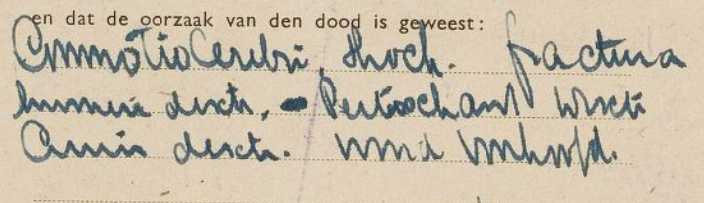 en dat de oorzaak van den dood is geweest:
Commotio Cerebri, shock. fractura
humeri dextr, Pertrochant
Cruris dextr. wond voorhoofd.